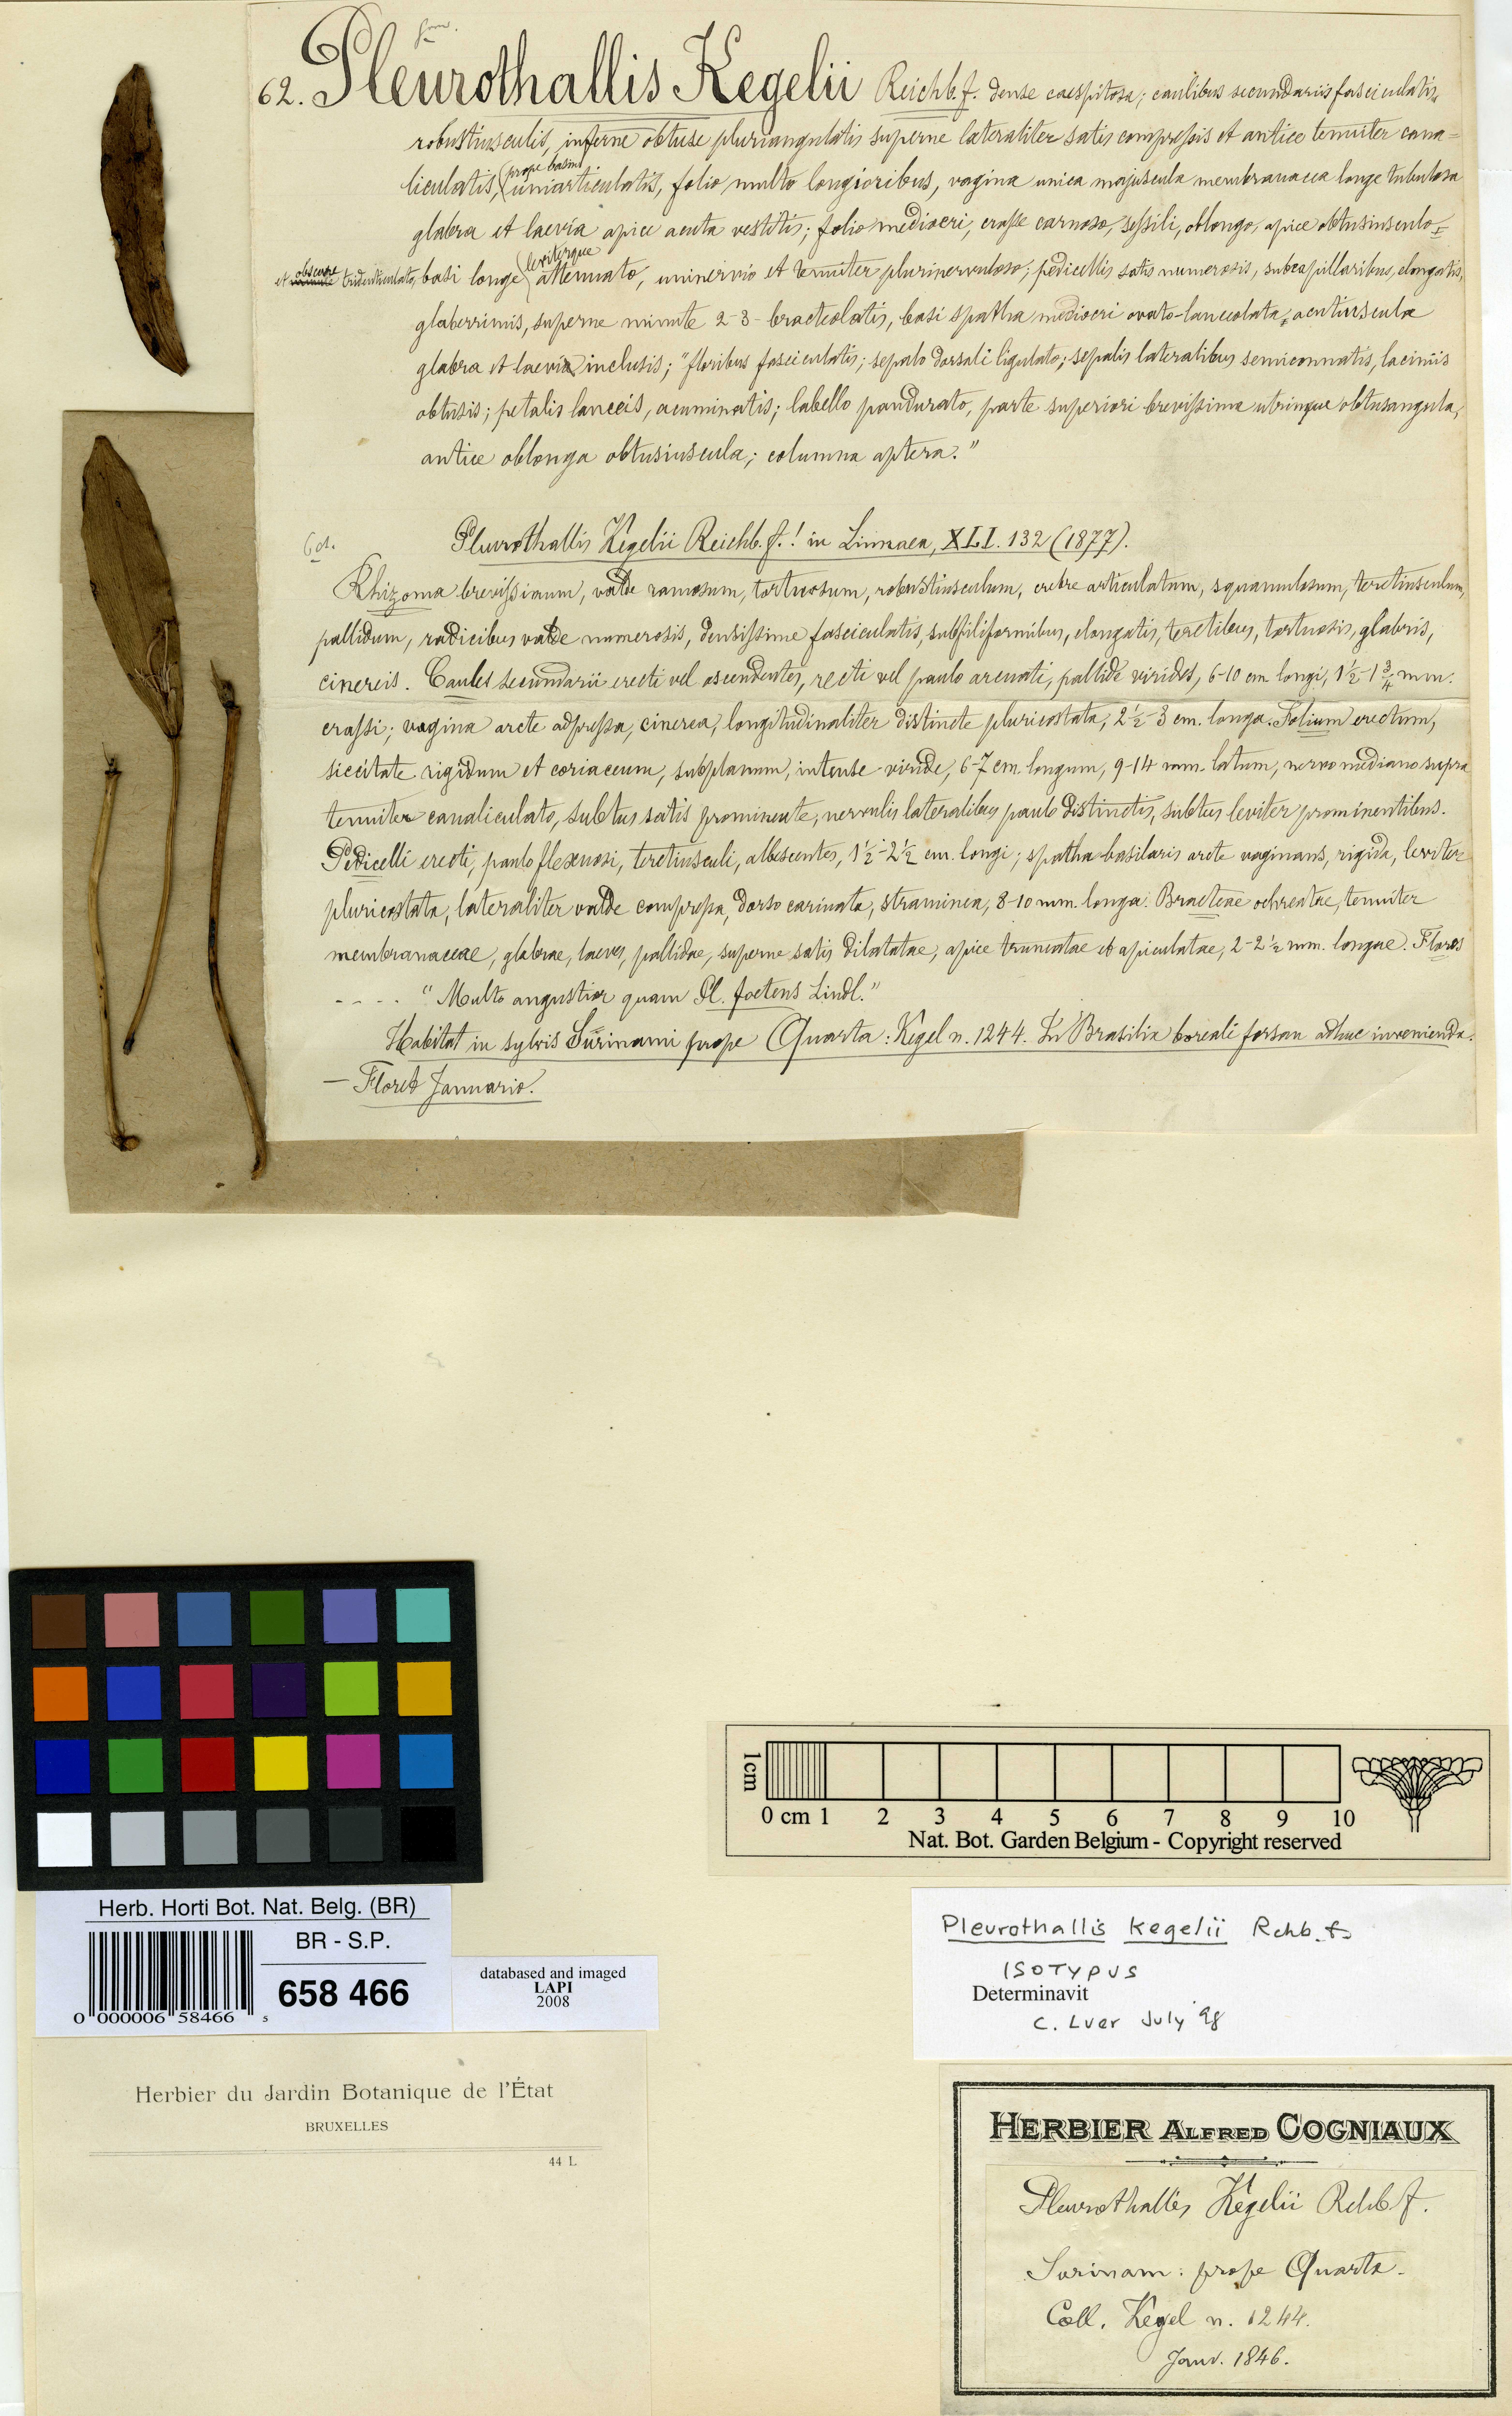 62. Pleurothallis Kegelii Reichb. f. dense caespitosa; caulibus secundariis fasciculatis
robustiusculis, inferne obtuse pluriangulatis superne lateraliter satis compressis et antice tenuiter cana=
liculatis, prope basim uniarticulatis, folio multo longioribus, vagina unica majuscula membranacea longe tubulosa
glabra et laevia apice acuta vestitis; folio mediocri, crasse carnoso, sessili, oblongo, apice obtusiusculo
et obscure tridenticulato, basi longe leviterque attenuato, uninervio et tenuiter plurinervuloso; pedicellis satis numerosis, subcapillaribus, elongatis,
glaberrimis, superne minute 2-3-bracteolatis, basi spatha mediocri ovato-lanceolata, acutiuscula
glabra et laevia inclusis; "floribus fasciculatis; sepalo dorsali ligulato; sepalis lateralibus semiconnatis, laciniis
obtusis; petalis lanceis, acuminatis; labello pandurato, parte superiori brevissima utrinque obtusangula,
antice oblonga obtusiuscula; columna aptera."
Pleurothallis Kegelii Reichb. f.! in Linnaea, XLI. 132 (1877).
Rhizoma brevissimum, valde ramosum, tortuosum, robustiusculum, crebre articulatum, squamulosum, teretiusculum,
pallidum, radicibus valde numerosis, densissime fasciculatis, subfiliformibus, elongatis, teretibus, tortuosis, glabris,
cinereis. Caules secundarii erecti vel ascendentes, recti vel paulo arcuati, pallide virides, 6-10 cm longi, 1½-1¾ mm.
crassi; vagina arcte adpressa, cinerea, longitudinaliter distincte pluricostata, 2½-3 cm. longa. Folium erectum,
siccitate rigidum et coriaceum, subplanum, intense viride, 6-7 cm. longum, 9-14 mm. latum, nervo mediano supra
tenuiter canaliculato, subtus satis prominente, nervulis lateralibus paulo distinctis, subtus leviter prominentibus.
Pedicelli erecti, paulo flexuosi, teretiusculi, albescentes, 1½-2½ cm. longi; spatha basilaris arcte vaginans, rigida, leviter
pluricostata, lateraliter valde compressa, dorso carinata, straminea, 8-10 mm. longa. Bracteae ochreatae, tenuiter
membranaceae, glabrae, laeves, pallidae, superne satis dilatatae, apice truncatae et apiculatae, 2-2½ mm. longae. Flores
- - - - "Multo angustior quam Pl. foetens Lindl."
Habitat in sylvis Surinami prope Quarta: Kegel n. 1244. In Brasilia boreali forsan adhuc invenienda.
— Floret Januario.
1cm
0 cm 1 2 3 4 5 6 7 8 9 10
Nat. Bot. Garden Belgium - Copyright reserved
Herb. Horti Bot. Nat. Belg. (BR)
BR - S.P.
658 466
0 000006 58466 s
databased and imaged
LAPI
2008
Pleurothallis kegelii Rchb. f.
ISOTYPUS
Determinavit
C. Luer July '98
Herbier du Jardin Botanique de l'État
BRUXELLES
44 L
HERBIER ALFRED COGNIAUX
Pleurothallis Kegelii Rchb f.
Surinam: prope Quarta.
Coll. Kegel n. 1244.
Janv. 1846.